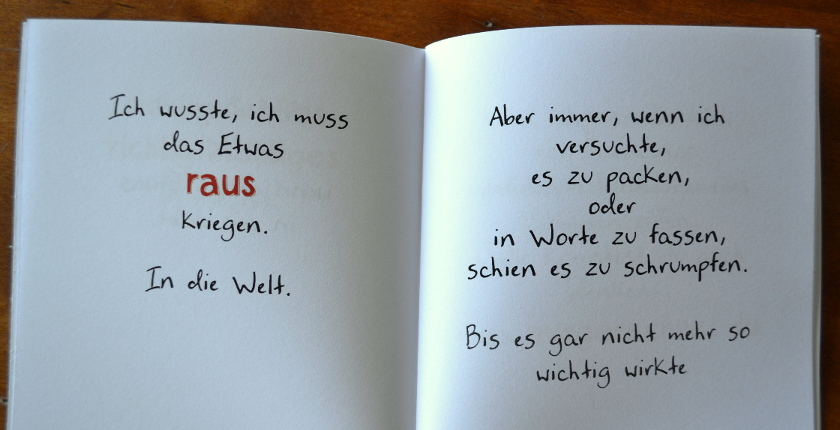 Ich wusste, ich muss
das Etwas
raus
kriegen.
In die Welt.
Aber immer, wenn ich
versuchte,
es zu packen,
oder
in Worte zu fassen,
schien es zu schrumpfen.
Bis es gar nicht mehr so
wichtig wirkte